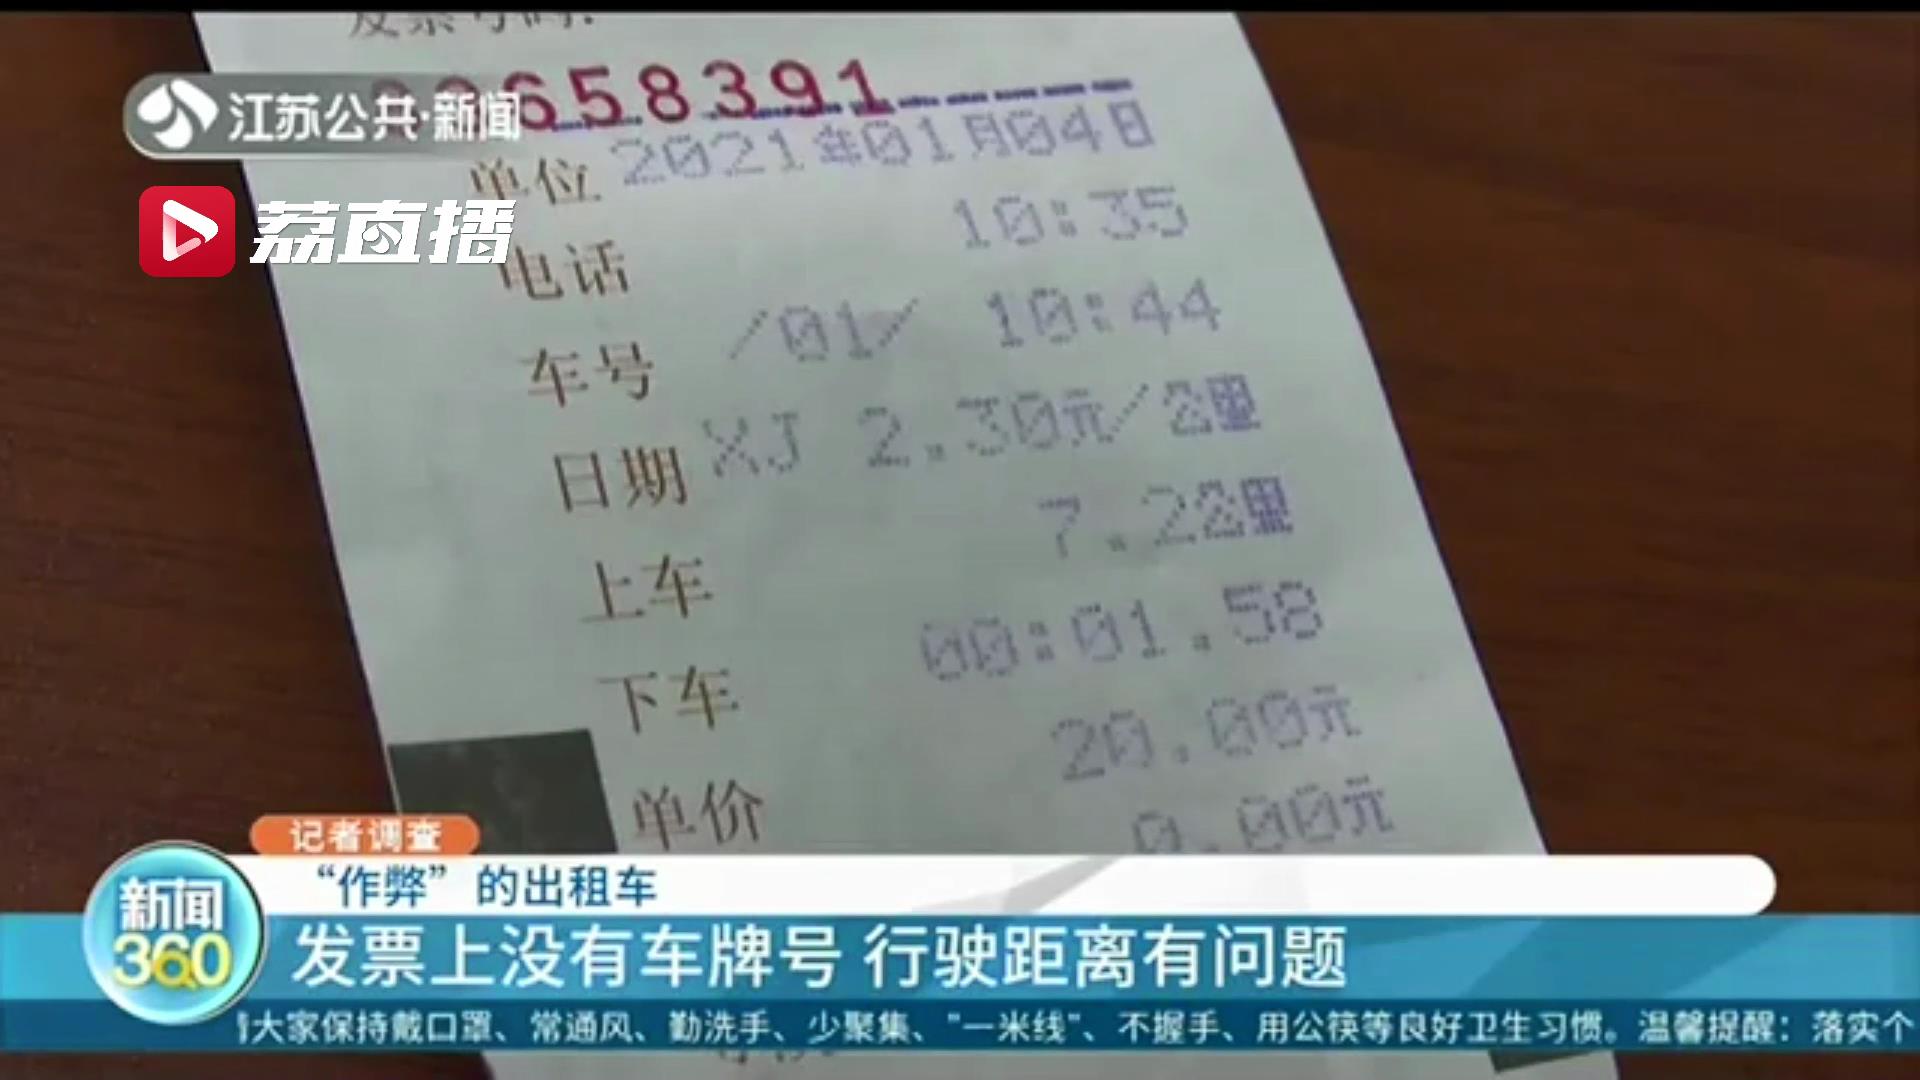 发票号码:
658391
江苏公共·新闻
单位 2021年01月04日
荔直播
电话 10:35
车号 /01/ 10:44
日期 XJ 2.30元/公里
上车 7.2公里
下车 00:01.58
20.00元
单价 0.00元
记者调查
“作弊”的出租车
新闻360
发票上没有车牌号 行驶距离有问题
大家保持戴口罩、常通风、勤洗手、少聚集、"一米线"、不握手、用公筷等良好卫生习惯。温馨提醒：落实个